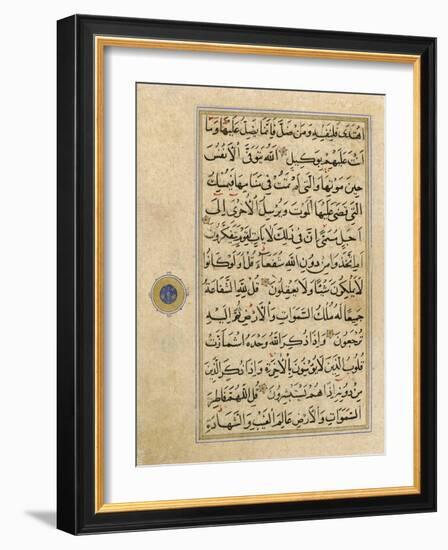 اهْتَدَى فَلِنَفْسِهِ وَمَنْ ضَلَّ فَإِنَّمَا يَضِلُّ عَلَيْهَا وَمَا
أَنْتَ عَلَيْهِمْ بِوَكِيلٍ اللَّهُ يَتَوَفَّى الْأَنْفُسَ
حِينَ مَوْتِهَا وَالَّتِي لَمْ تَمُتْ فِي مَنَامِهَا فَيُمْسِكُ
الَّتِي قَضَى عَلَيْهَا الْمَوْتَ وَيُرْسِلُ الْأُخْرَى إِلَى
أَجَلٍ مُسَمًّى إِنَّ فِي ذَلِكَ لَآيَاتٍ لِقَوْمٍ يَتَفَكَّرُونَ
أَمِ اتَّخَذُوا مِنْ دُونِ اللَّهِ شُفَعَاءَ قُلْ أَوَلَوْ كَانُوا
لَا يَمْلِكُونَ شَيْئًا وَلَا يَعْقِلُونَ قُلْ لِلَّهِ الشَّفَاعَةُ
جَمِيعًا لَهُ مُلْكُ السَّمَوَاتِ وَالْأَرْضِ ثُمَّ إِلَيْهِ
تُرْجَعُونَ وَإِذَا ذُكِرَ اللَّهُ وَحْدَهُ اشْمَأَزَّتْ
قُلُوبُ الَّذِينَ لَا يُؤْمِنُونَ بِالْآخِرَةِ وَإِذَا ذُكِرَ الَّذِينَ
مِنْ دُونِهِ إِذَا هُمْ يَسْتَبْشِرُونَ قُلِ اللَّهُمَّ فَاطِرَ
السَّمَوَاتِ وَالْأَرْضِ عَالِمَ الْغَيْبِ وَالشَّهَادَةِ